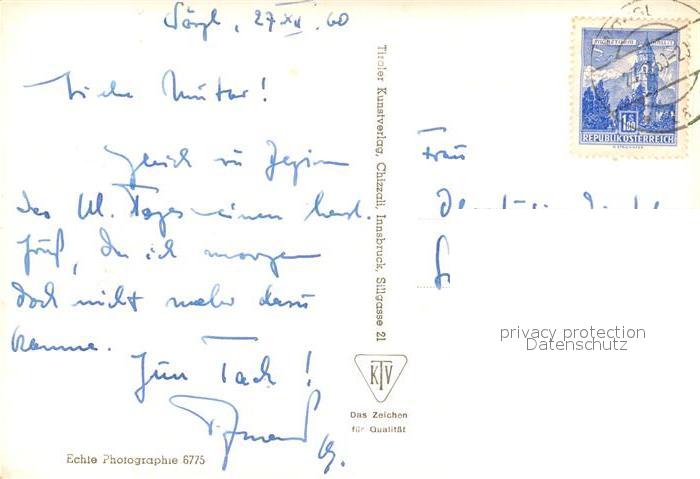 Wörgl, 27. XII. 60
Liebe Mutter!
Gleich zu Beginn
des Ul. Tages einen herzl.
Gruß, da ich morgen
doch nicht mehr dazu
komme.
Zum Tack!
Tiroler Kunstverlag, Chizzali, Innsbruck, Sillgasse 21
KTV
Das Zeichen
für Qualität
Echte Photographie 6775
1.80
REPUBLIK ÖSTERREICH
Frau
privacy protection
Datenschutz